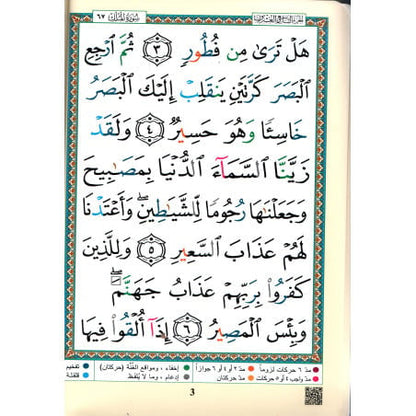 سُورَةُ المُلْكِ ٦٧
هَلْ تَرَىٰ مِن فُطُورٍ ٣ ثُمَّ ٱرْجِعِ
ٱلْبَصَرَ كَرَّتَيْنِ يَنقَلِبْ إِلَيْكَ ٱلْبَصَرُ
خَاسِئًا وَهُوَ حَسِيرٌ ٤ وَلَقَدْ
زَيَّنَّا ٱلسَّمَآءَ ٱلدُّنْيَا بِمَصَٰبِيحَ
وَجَعَلْنَٰهَا رُجُومًا لِّلشَّيَٰطِينِ ۖ وَأَعْتَدْنَا
لَهُمْ عَذَابَ ٱلسَّعِيرِ ٥ وَلِلَّذِينَ
كَفَرُوا۟ بِرَبِّهِمْ عَذَابُ جَهَنَّمَ ۖ
وَبِئْسَ ٱلْمَصِيرُ ٦ إِذَآ أُلْقُوا۟ فِيهَا
مدّ ٦ حركات لزوماً مدّ ٢ أو ٤ أو ٦ جوازاً إخفاء، ومواقع الغُنَّة (حركتان) تفخيم
مدّ واجب ٤ أو ٥ حركات مدّ حركتان إدغام، وما لا يُلفَظ قلقلة
3